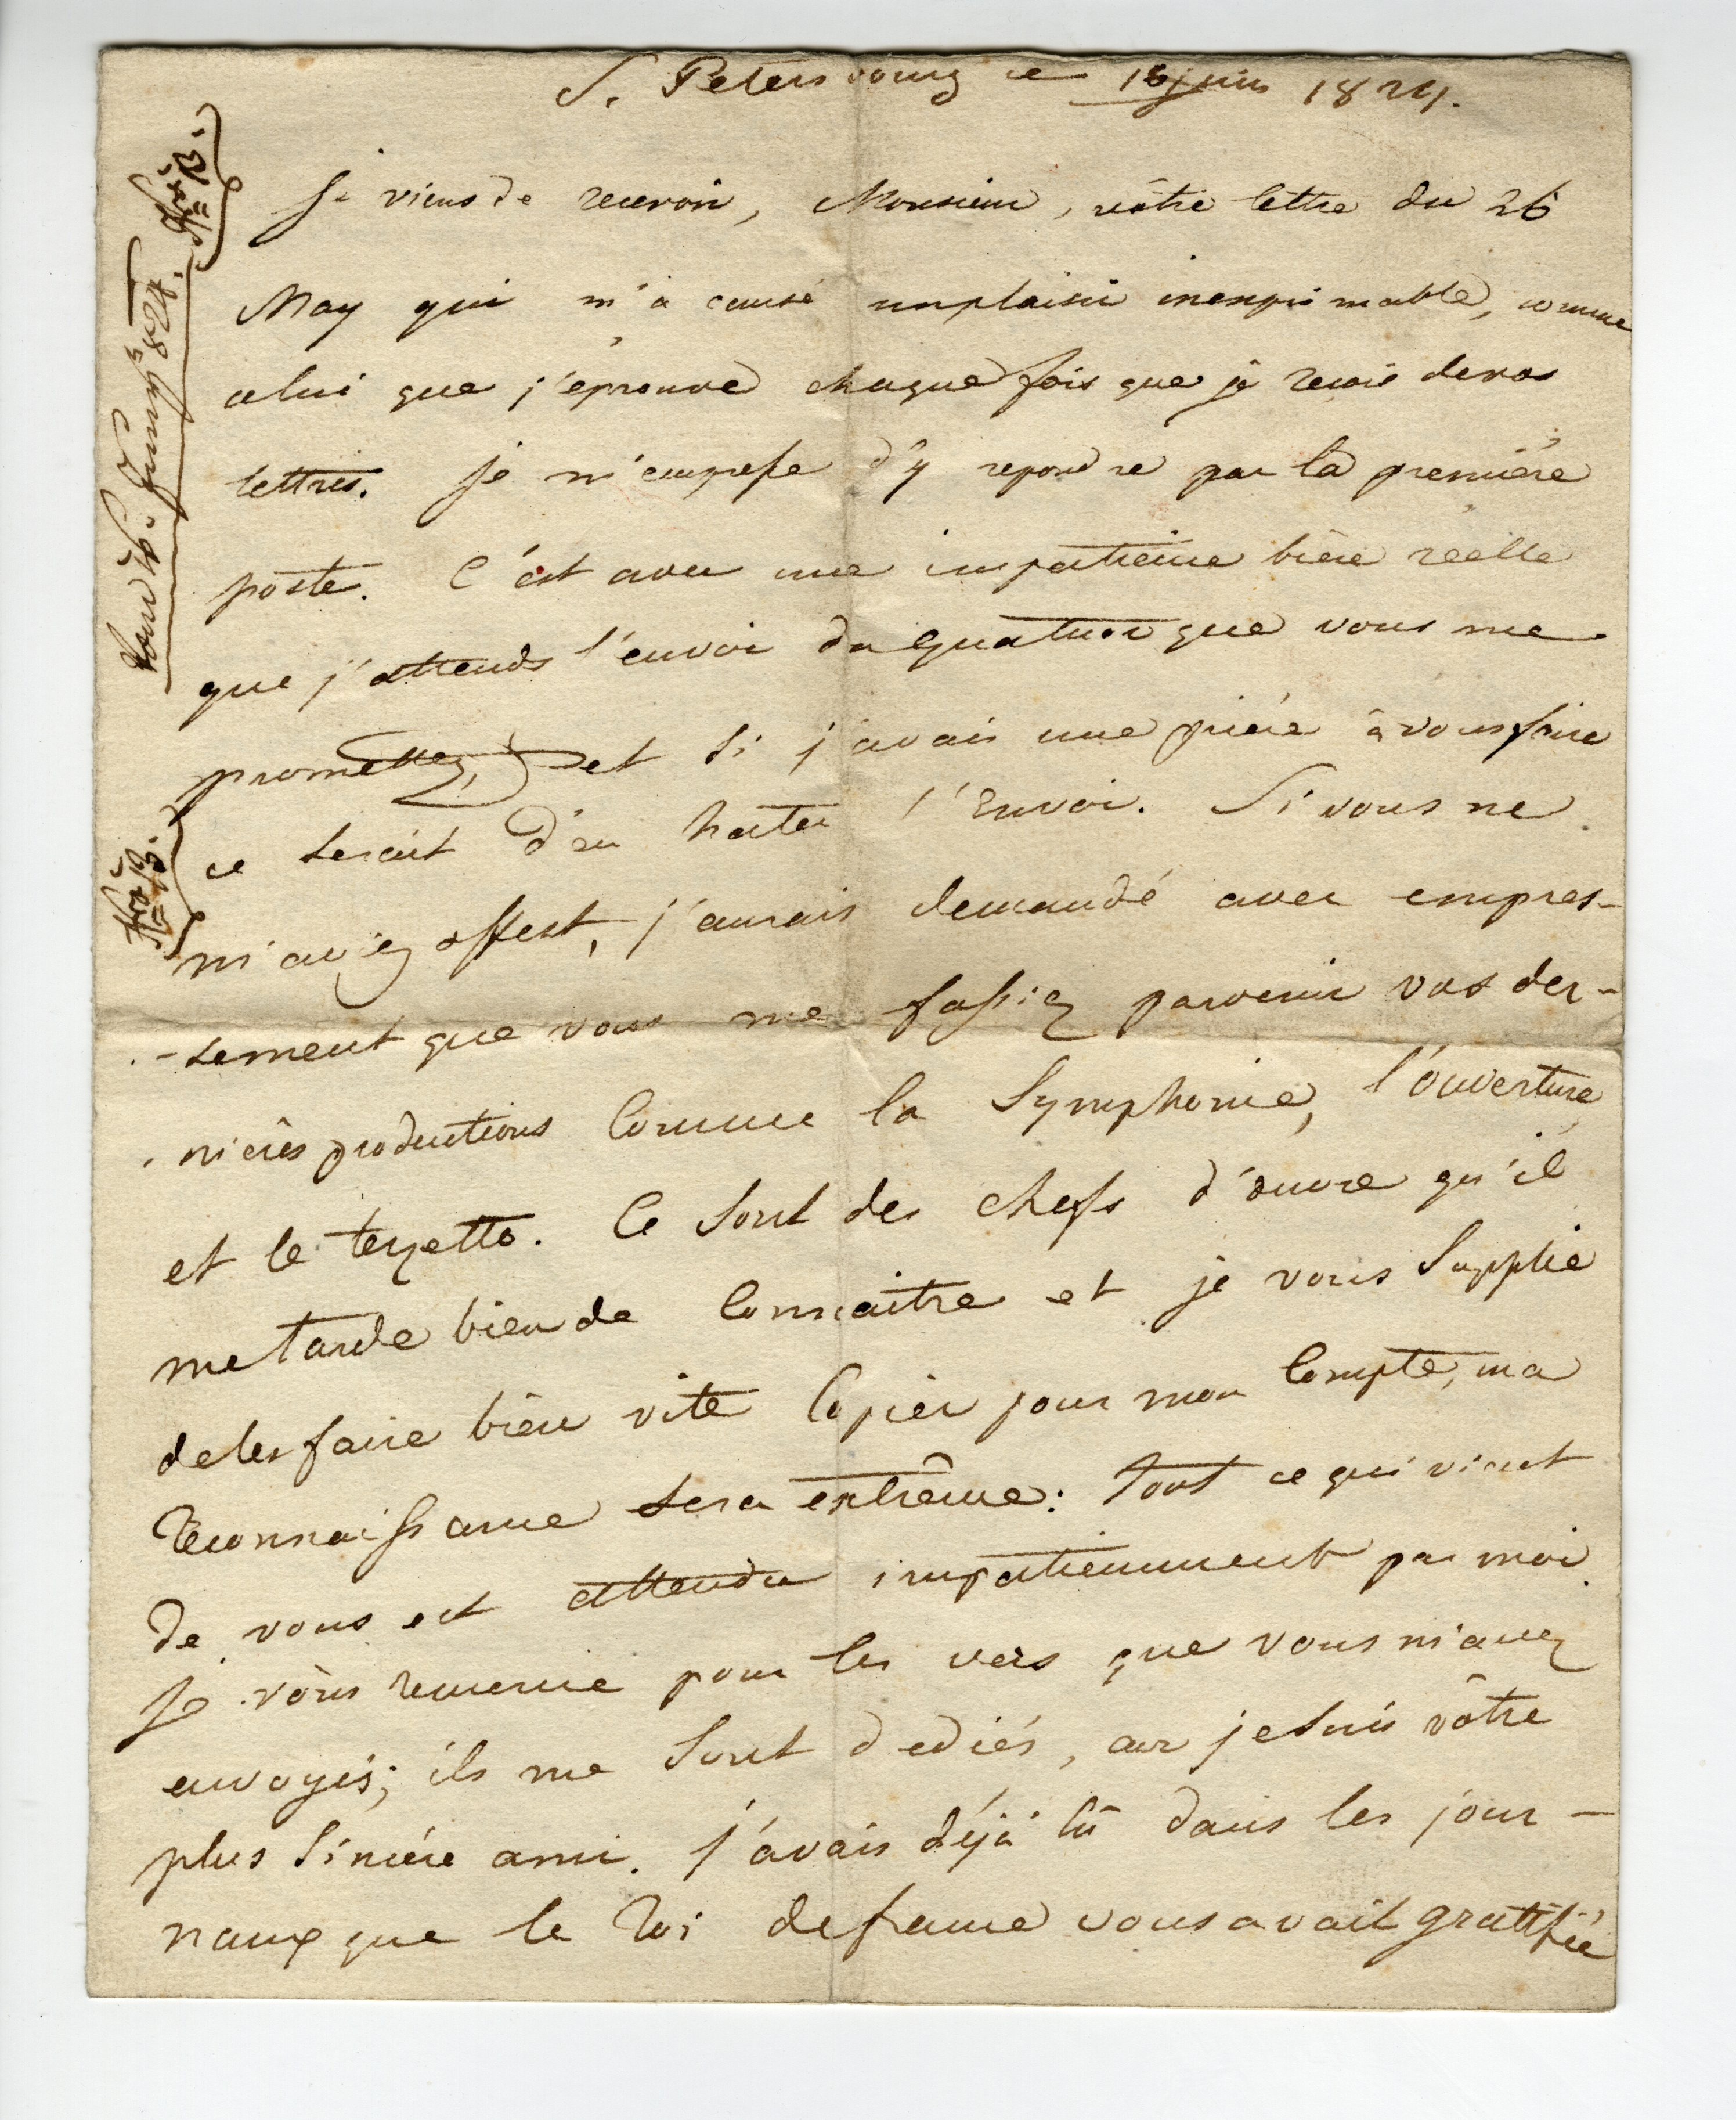 S. Petersbourg ce 16 juin 1824.
Je viens de recevoir, Monsieur, vôtre lettre du 26
May qui m'a causé un plaisir inexprimable, comme
celui que j'éprouve chaque fois que je recois de vos
lettres. Je m'empresse d'y repondre par la première
poste. C'est avec une impatience bien réelle
que j'attends l'envoi du quatuor que vous me
promettez, et si j'avais une prière à vous faire
ce serait d'en hater l'Envoi. Si vous ne
m'aviez offert, j'aurais demandé avec empres-
-sement que vous me fassiez parvenir vos der-
nières productions comme la Symphonie, l'ouverture,
et le terzetto. Ce sont des chefs d'œuvre qu'il
me tarde bien de connaitre et je vous supplie
de les faire bien vite copier pour mon compte, ma
reconnaissance sera extrême: tout ce qui vient
de vous est attendu impatiemment par moi.
Je vous remercie pour les vers que vous m'avez
envoyés; ils me sont dediés, car je suis vôtre
plus sincère ami. J'avais déjà lû dans les jour-
naux que le Roi de france vous avait gratifié
vom 16. Juny 824.